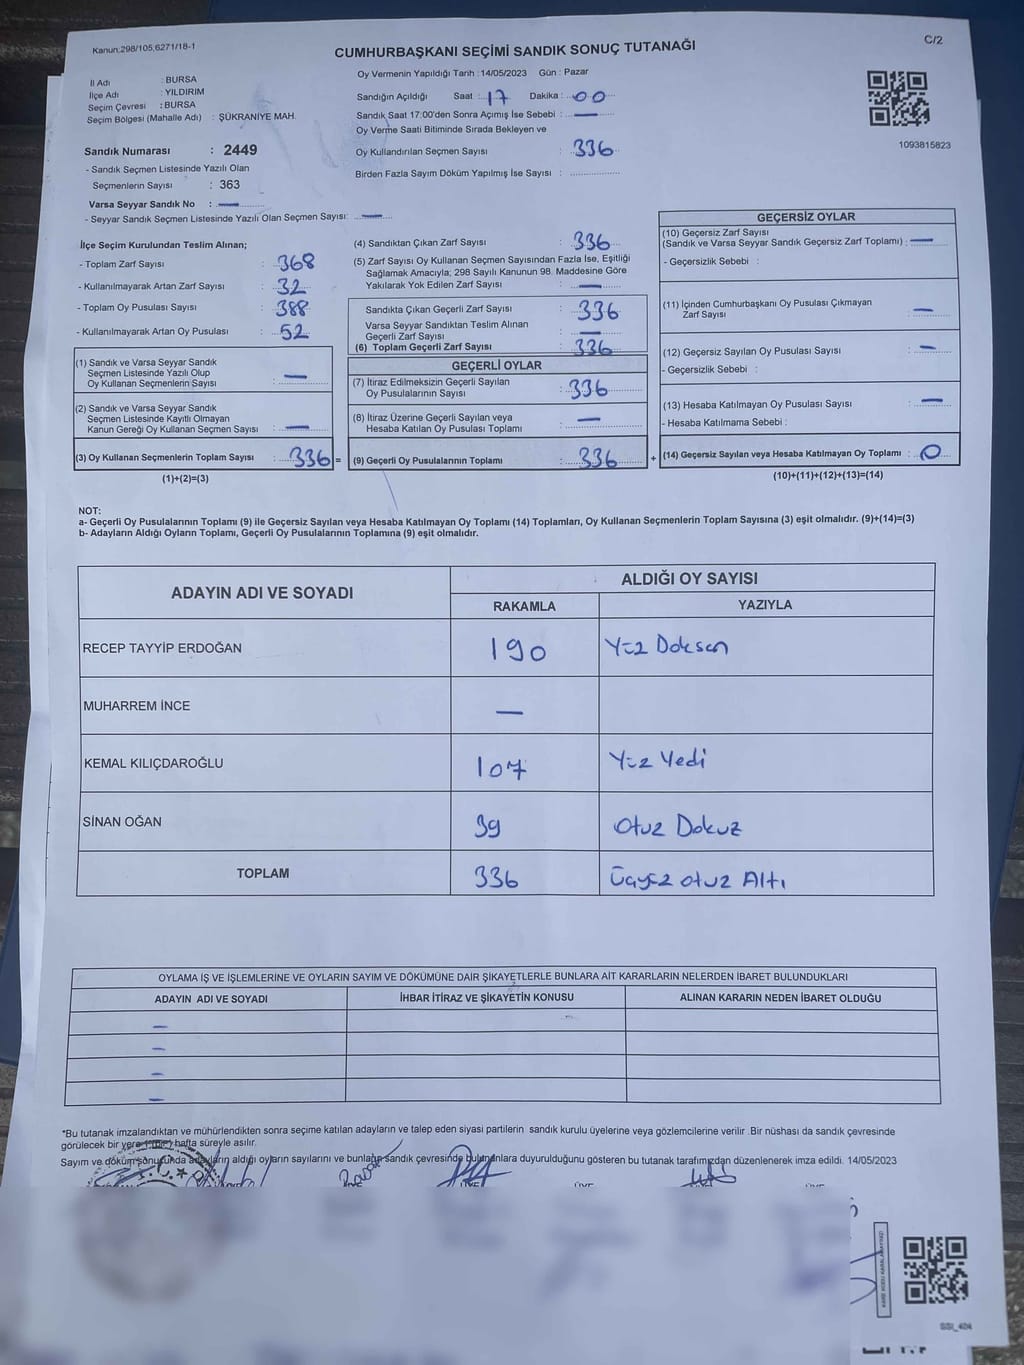 Kanun;298/105,6271/18-1
C/2
CUMHURBAŞKANI SEÇİMİ SANDIK SONUÇ TUTANAĞI
İl Adı : BURSA
İlçe Adı : YILDIRIM
Seçim Çevresi : BURSA
Seçim Bölgesi (Mahalle Adı) : ŞÜKRANİYE MAH.
Sandık Numarası : 2449
- Sandık Seçmen Listesinde Yazılı Olan
Seçmenlerin Sayısı : 363
Varsa Seyyar Sandık No : —
- Seyyar Sandık Seçmen Listesinde Yazılı Olan Seçmen Sayısı: —
Oy Vermenin Yapıldığı Tarih : 14/05/2023 Gün : Pazar
Sandığın Açıldığı Saat : 17 Dakika : 00
Sandık Saat 17:00'den Sonra Açımış İse Sebebi : —
Oy Verme Saati Bitiminde Sırada Bekleyen ve
Oy Kullandırılan Seçmen Sayısı : 336
Birden Fazla Sayım Döküm Yapılmış İse Sayısı :
1093815823
İlçe Seçim Kurulundan Teslim Alınan;
- Toplam Zarf Sayısı : 368
- Kullanılmayarak Artan Zarf Sayısı : 32
- Toplam Oy Pusulası Sayısı : 388
- Kullanılmayarak Artan Oy Pusulası : 52
(1) Sandık ve Varsa Seyyar Sandık
Seçmen Listesinde Yazılı Olup
Oy Kullanan Seçmenlerin Sayısı : —
(2) Sandık ve Varsa Seyyar Sandık
Seçmen Listesinde Kayıtlı Olmayan
Kanun Gereği Oy Kullanan Seçmen Sayısı : —
(3) Oy Kullanan Seçmenlerin Toplam Sayısı : 336 =
(1)+(2)=(3)
(4) Sandıktan Çıkan Zarf Sayısı : 336
(5) Zarf Sayısı Oy Kullanan Seçmen Sayısından Fazla İse, Eşitliği
Sağlamak Amacıyla; 298 Sayılı Kanunun 98. Maddesine Göre
Yakılarak Yok Edilen Zarf Sayısı : —
Sandıkta Çıkan Geçerli Zarf Sayısı : 336
Varsa Seyyar Sandıktan Teslim Alınan
Geçerli Zarf Sayısı : —
(6) Toplam Geçerli Zarf Sayısı : 336
GEÇERLİ OYLAR
(7) İtiraz Edilmeksizin Geçerli Sayılan
Oy Pusulalarının Sayısı : 336
(8) İtiraz Üzerine Geçerli Sayılan veya
Hesaba Katılan Oy Pusulası Toplamı : —
(9) Geçerli Oy Pusulalarının Toplamı : 336 +
GEÇERSİZ OYLAR
(10) Geçersiz Zarf Sayısı
(Sandık ve Varsa Seyyar Sandık Geçersiz Zarf Toplamı) : —
- Geçersizlik Sebebi :
(11) İçinden Cumhurbaşkanı Oy Pusulası Çıkmayan
Zarf Sayısı : —
(12) Geçersiz Sayılan Oy Pusulası Sayısı : —
- Geçersizlik Sebebi :
(13) Hesaba Katılmayan Oy Pusulası Sayısı : —
- Hesaba Katılmama Sebebi :
(14) Geçersiz Sayılan veya Hesaba Katılmayan Oy Toplamı : 0
(10)+(11)+(12)+(13)=(14)
NOT:
a- Geçerli Oy Pusulalarının Toplamı (9) ile Geçersiz Sayılan veya Hesaba Katılmayan Oy Toplamı (14) Toplamları, Oy Kullanan Seçmenlerin Toplam Sayısına (3) eşit olmalıdır. (9)+(14)=(3)
b- Adayların Aldığı Oyların Toplamı, Geçerli Oy Pusulalarının Toplamına (9) eşit olmalıdır.
ADAYIN ADI VE SOYADI ALDIĞI OY SAYISI
RAKAMLA YAZIYLA
RECEP TAYYİP ERDOĞAN 190 Yüz Doksan
MUHARREM İNCE —
KEMAL KILIÇDAROĞLU 107 Yüz Yedi
SİNAN OĞAN 39 Otuz Dokuz
TOPLAM 336 Üçyüz otuz Altı
OYLAMA İŞ VE İŞLEMLERİNE VE OYLARIN SAYIM VE DÖKÜMÜNE DAİR ŞİKAYETLERLE BUNLARA AİT KARARLARIN NELERDEN İBARET BULUNDUKLARI
ADAYIN ADI VE SOYADI İHBAR İTİRAZ VE ŞİKAYETİN KONUSU ALINAN KARARIN NEDEN İBARET OLDUĞU
—
—
—
—
*Bu tutanak imzalandıktan ve mühürlendikten sonra seçime katılan adayların ve talep eden siyasi partilerin sandık kurulu üyelerine veya gözlemcilerine verilir .Bir nüshası da sandık çevresinde
görülecek bir yere 1 (Bir) hafta süreyle asılır.
Sayım ve döküm sonucunda adayların aldığı oyların sayılarını ve bunların sandık çevresinde bulunanlara duyurulduğunu gösteren bu tutanak tarafımızdan düzenlenerek imza edildi. 14/05/2023
ÜYE ÜYE ÜYE
SSI_404